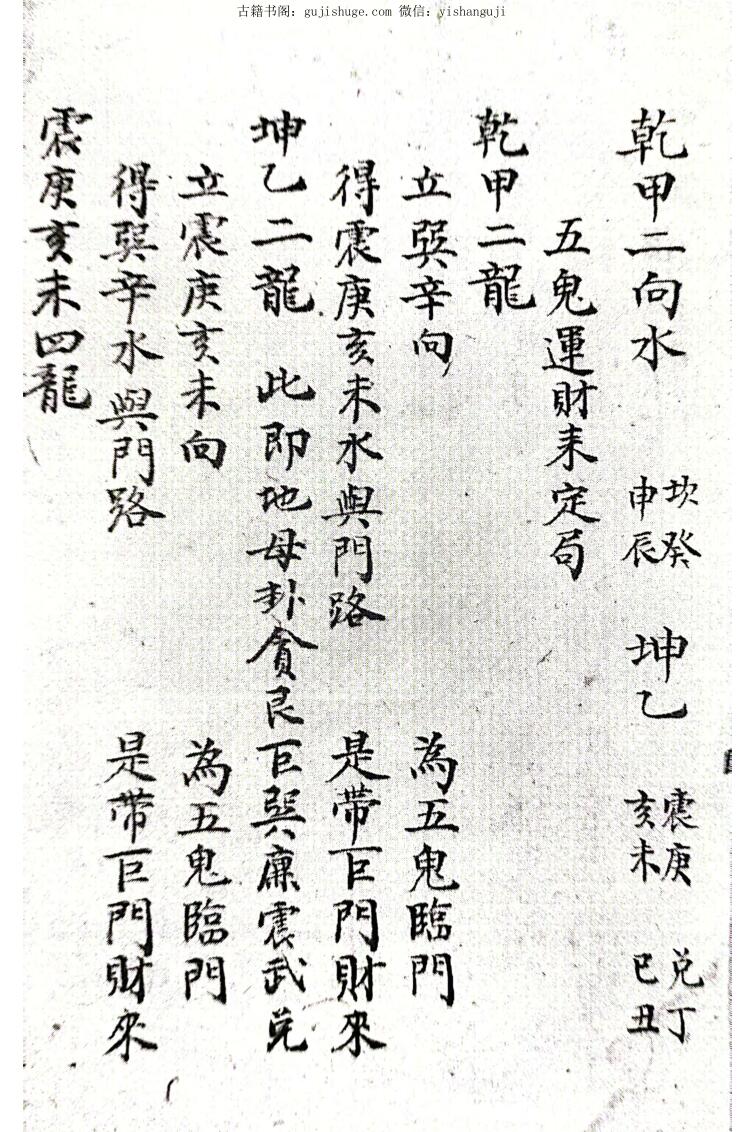 古籍书阁：gujishuge.com 微信：yishanguji
乾甲二向水 坎癸申辰 坤乙 震庚亥未 兑丁巳丑
五鬼運財耒定局
乾甲二龍
立巽辛向 為五鬼臨門
得震庚亥未水與門路 是帶巨門財來
坤乙二龍 此即地母卦貪艮巨巽廉震武兑
立震庚亥未向 為五鬼臨門
得巽辛水與門路 是帶巨門財來
震庚亥未四龍